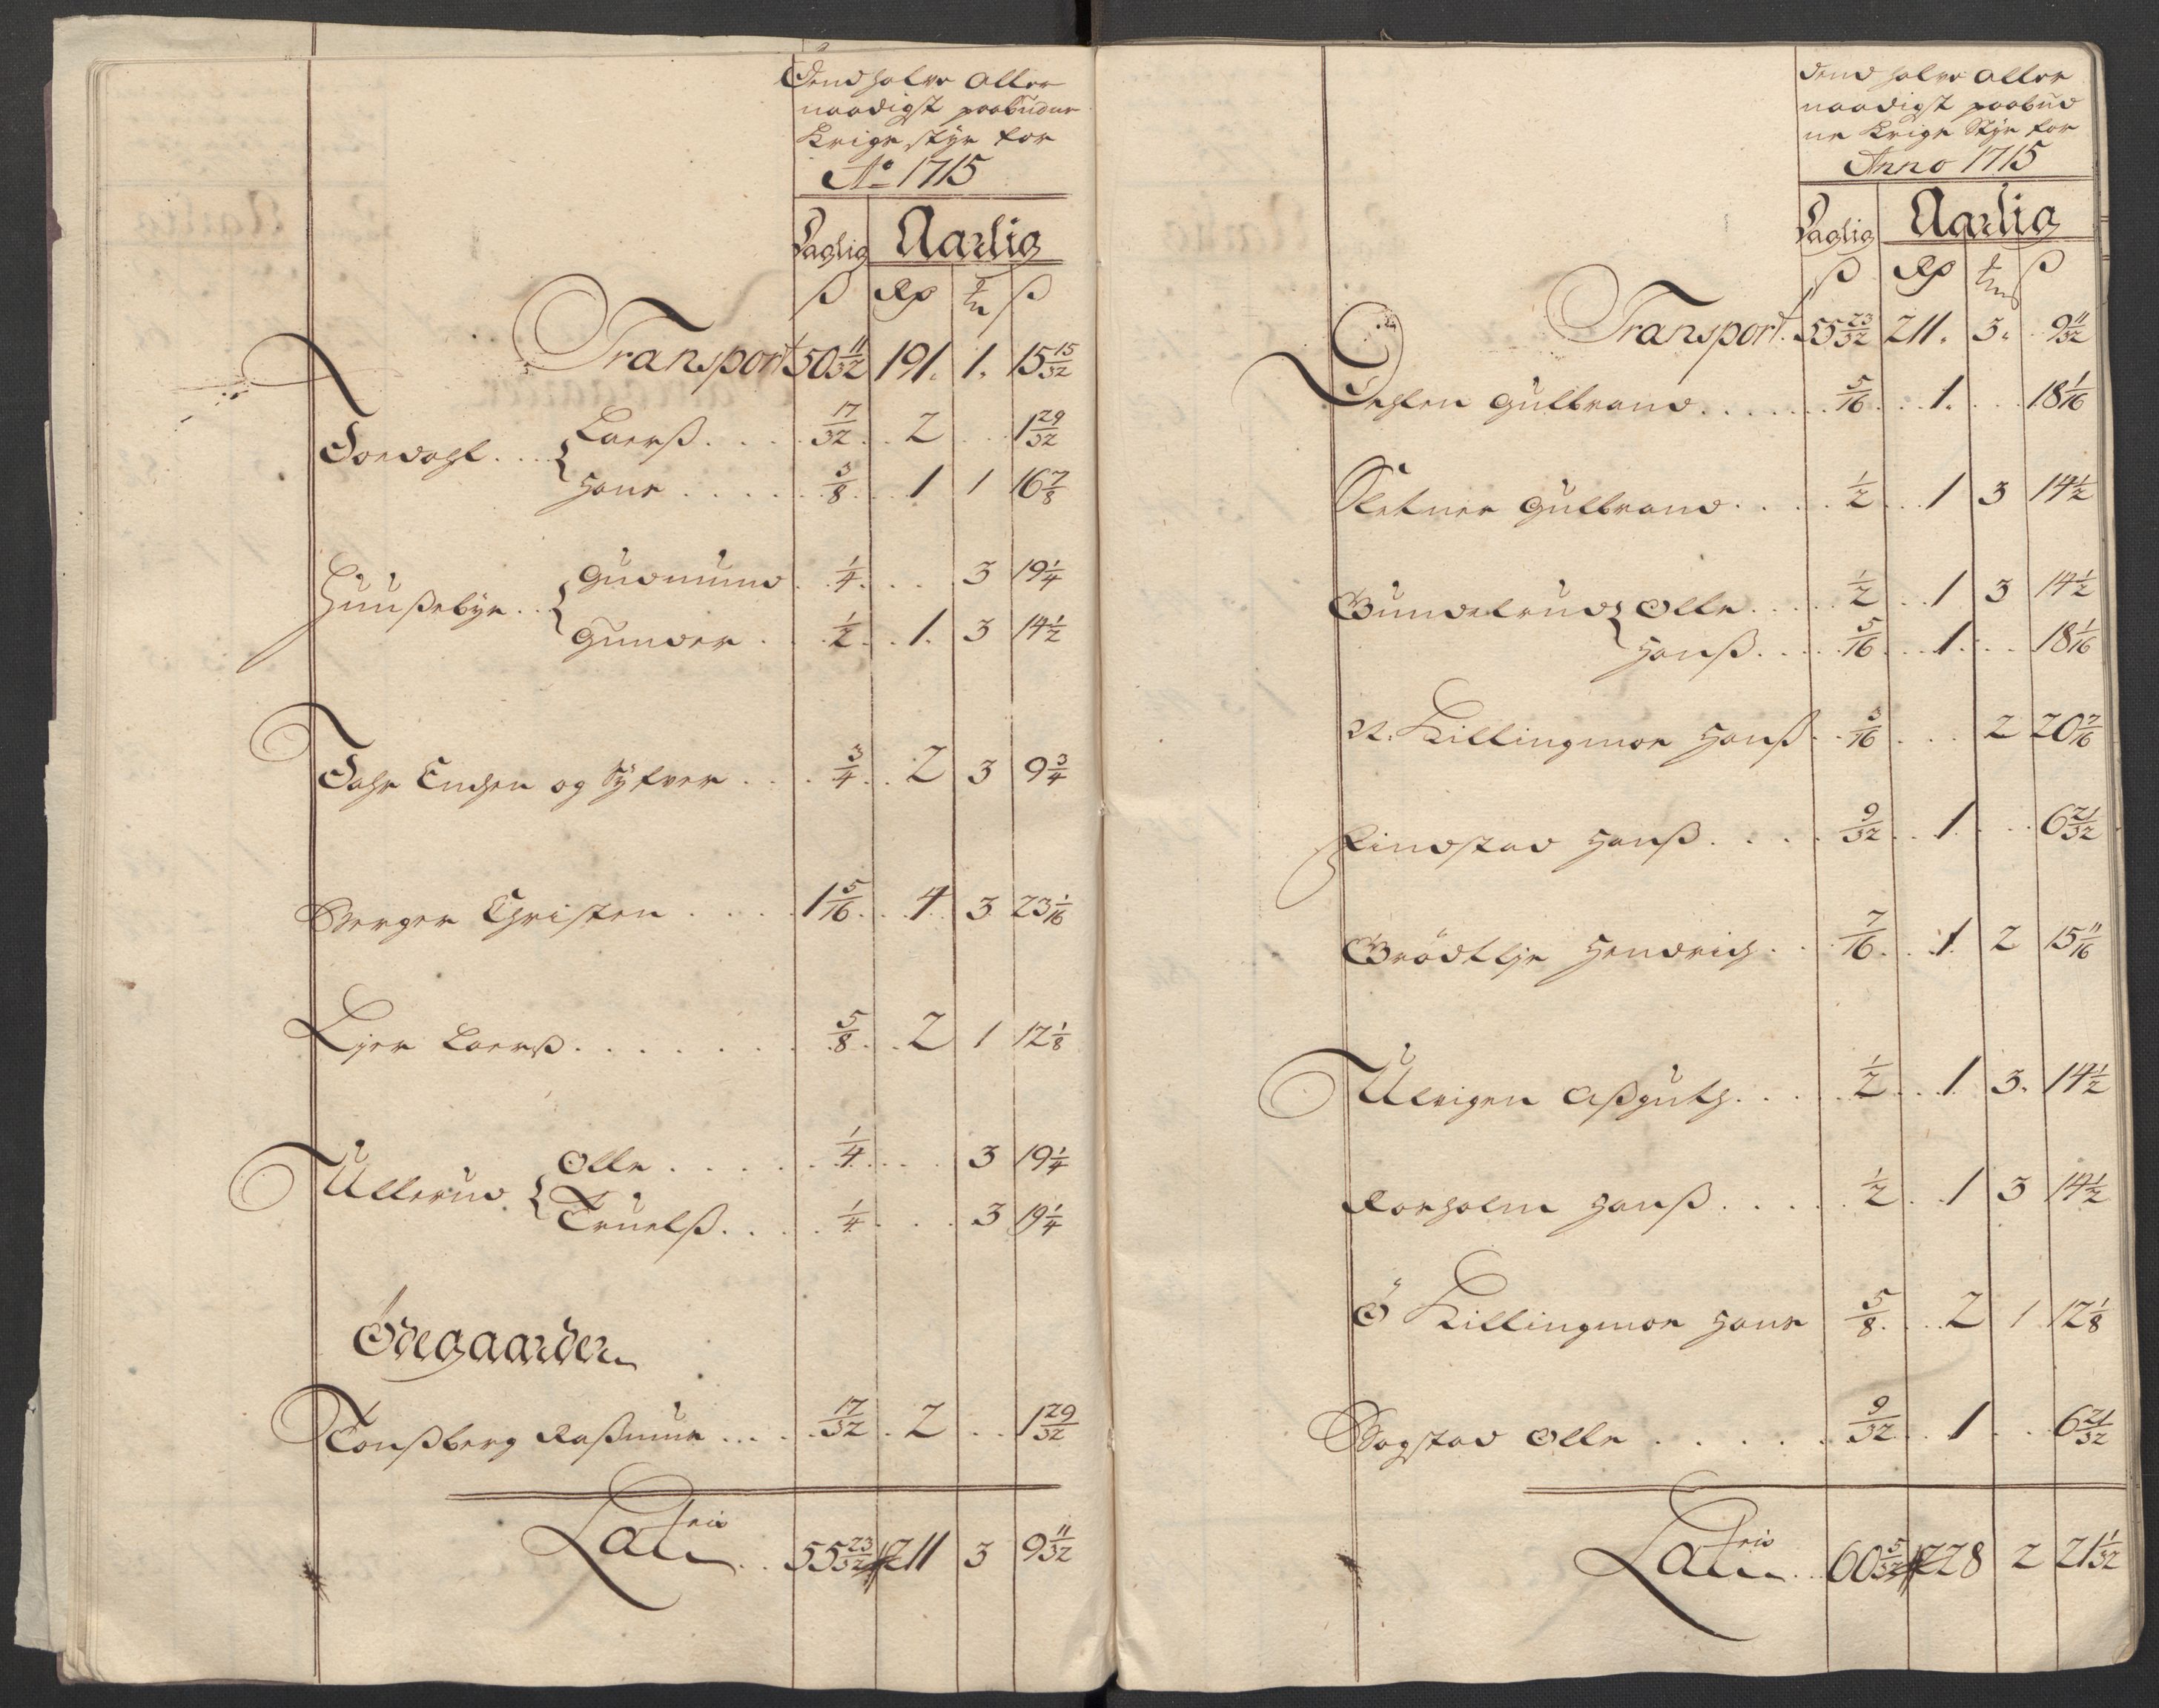 Dend halve Aller
naadigst paabudne
Krige styr for
Ao 1715
Daglig Aarlig
ß Rd ort ß
Transport 50 11/32 191. 1. 15 15/32
Laerß . . . 17/32 . . 2 . . 1 29/32
Jordahl . . .
Hans . . . . 3/8 . . . 1 1 16 7/8
Gudmund . . 1/4 . . . . 3 19 1/4
Huußebye . .
Gunder . . . 1/2 . . 1. 3 14 1/2
Fahr Endsen og Syfver . . . 3/4 . . 2 3 9 3/4
Berger Christen . . . . 1 5/16 . . 4 3 23 1/16
Lyer Laerß . . . . . . . 5/8 . . 2 1 12 1/8
Olle . . . . 1/4 . . . . 3 19 1/4
Ullerud
Truelß . . . 1/4 . . . 3 19 1/4
Ødegaarder
Tonßberg Raßmus . . . . 17/32 . 2 . . 1 29/32
Latris . . 55 23/32 211 3 9 11/32
Dend halve Aller
naadigst paabud
ne Krige Styr for
Anno 1715
Daglig Aarlig
ß Rd ort ß
Transport. 55 23/32 211. 3. 9 11/32
Gulbrand . . . . . . 5/16 . . 1. . . 18 1/16
Sletner Gulbrand . . . . 1/2 . . 1 3 14 1/2
Gundelrud Olle . . . . 1/2 . . 1 3 14 1/2
Hanß . . . . 5/16 . . 1 . . . 18 1/16
N. Killingmoe Hanß . . 3/16 . . . 2 20 7/16
Findstad Hanß . . . . 9/32 . . 1 . . . 6 21/32
Grödtlje Hendrich . . 7/16 . . 1 2 15 11/16
Ulrigen Aßguth . . . . 1/2 . . 1 3. 14 1/2
Rorholm Hanß . . . . . 1/2 . . 1 3 14 1/2
Ö Killingmoe Hans 5/8 . . 2 1 12 1/8
Bogstad Olle . . . . . 9/32 . . 1 . . 6 21/32
Latris . . 60 5/32 228 2 21 1/32